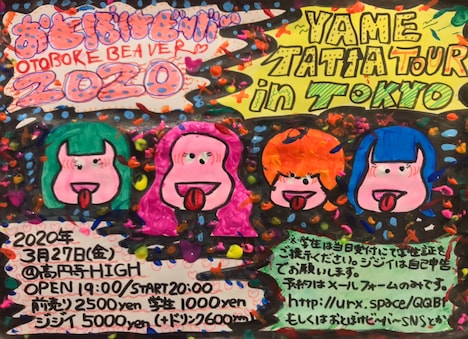 おとぼけビ〜バ〜
OTOBOKE BEAVER
2020
YAME
TATTA TOUR
in TOKYO
2020年
3月27日(金)
@高円寺HIGH
OPEN 19:00/START 20:00
前売り 2500yen 学生 1000yen
ジジイ 5000yen (+ドリンク600yen)
※学生は当日受付にて学生証を
ご提示ください。ジジイは自己申告
でお願いします。
予約はメールフォームのみです。
http://urx.space/QQB1
もしくはおとぼけビ〜バ〜SNSとか